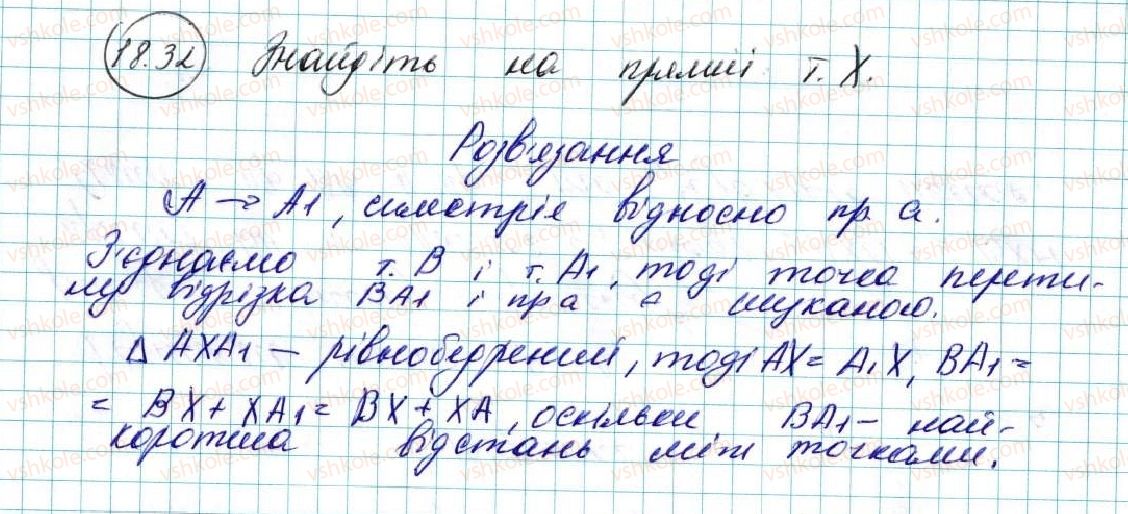 18.32 Знайдіть на прямій т. X.
Розв'язання
A → A1, симетрія відносно пр a.
З'єднаємо т. B і т. A1, тоді точка перети-
ну відрізка BA1 і пр a є шуканою.
Δ AXA1 – рівнобедрений, тоді AX = A1X, BA1 =
= BX + XA1 = BX + XA, оскільки BA1 – най-
коротша відстань між точками.